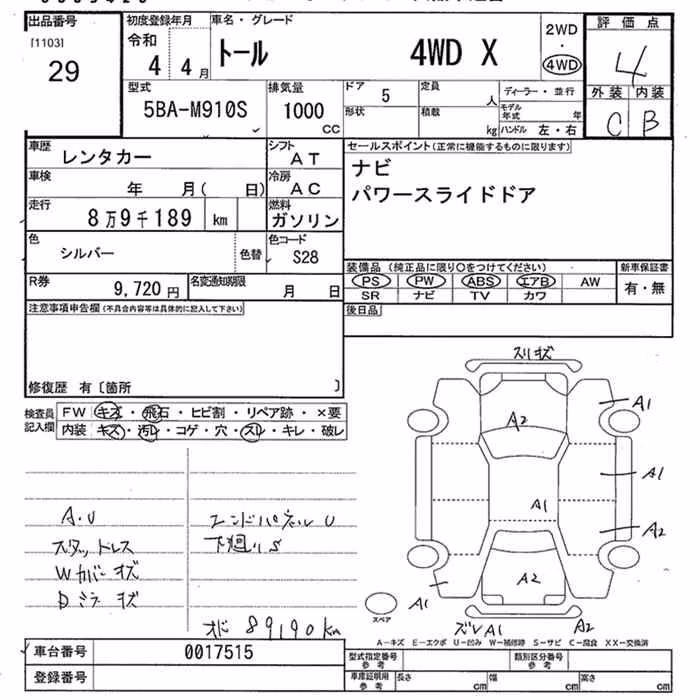 出品番号
[1103]
29
初度登録年月
令和
4 4月
車名・グレード
トール 4WD X
2WD
・
4WD
評価点
4
外装 内装
C B
型式
5BA-M910S
排気量
1000
CC
ドア 5
形状
定員 人
積載 kg
ディーラー・並行
モデル年式 年
ハンドル 左・右
車歴 レンタカー
シフト AT
車検 年 月( 日)
冷房 AC
走行 8万9千189 km
燃料 ガソリン
色 シルバー 色替
色コード S28
R券 9,720円
名変通知期限 月 日
セールスポイント(正常に機能するものに限ります)
ナビ
パワースライドドア
装備品(純正品に限り○をつけてください)
新車保証書
PS PW ABS エアB AW
有・無
SR ナビ TV カワ
後日品
注意事項申告欄(不具合内容等は具体的に記入して下さい)
修復歴 有〔箇所 〕
検査員
記入欄
FW キズ・飛石・ヒビ割・リペア跡・×要
内装 キズ・汚レ・コゲ・穴・スレ・キレ・破レ
A・U
スタッドレス
Wカバーキズ
Dミラーキズ
エンドパネルU
下廻りS
オド 89190km
スリキズ
A2
A1
A1
A1
A2
A2
A1
スペア
ズレA1
A2
A-キズ E-エクボ U-凹み W-補修跡 S-サビ C-腐食 XX-交換済
車台番号 0017515
登録番号
型式指定番号
参考
類別区分番号
参考
車庫証明用
参考
長さ cm
幅 cm
高さ cm